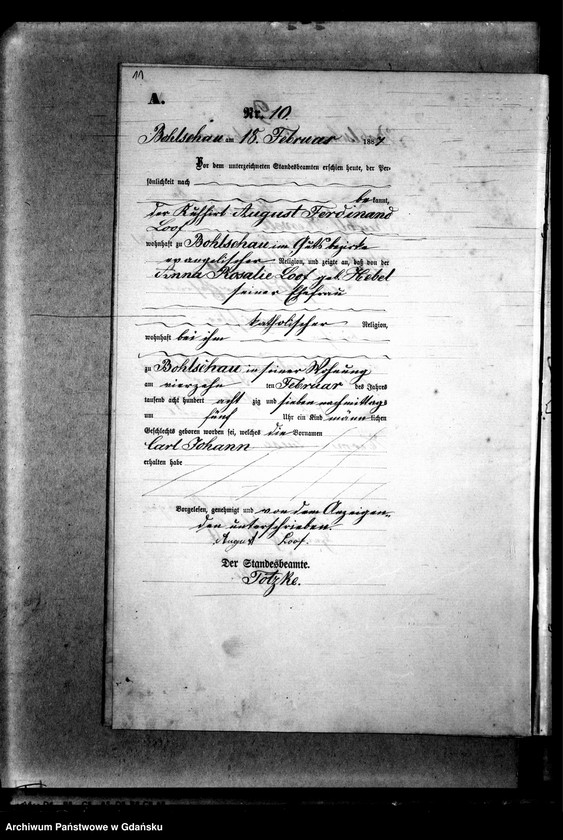 11
A.
Nr. 10.
Bohlschau am 15. Februar 1887
Vor dem unterzeichneten Standesbeamten erschien heute, der Per-
sönlichkeit nach
be kannt,
der Kuhhirt August Ferdinand
Loof
wohnhaft zu Bohlschau im Gutsbezirke
evangelischer Religion, und zeigte an, daß von der
Anna Rosalie Loof geb. Hebel
seiner Ehefrau
katholischer Religion,
wohnhaft bei ihm
zu Bohlschau in seiner Wohnung
am vierzehn ten Februar des Jahres
tausend acht hundert acht zig und sieben nachmittags
um fünf Uhr ein Kind männ lichen
Geschlechts geboren worden sei, welches die Vornamen
Carl Johann
erhalten habe
Vorgelesen, genehmigt und von dem Anzeigen-
den unterschrieben.
August Loof.
Der Standesbeamte.
Totzke.
Archiwum Państwowe w Gdańsku